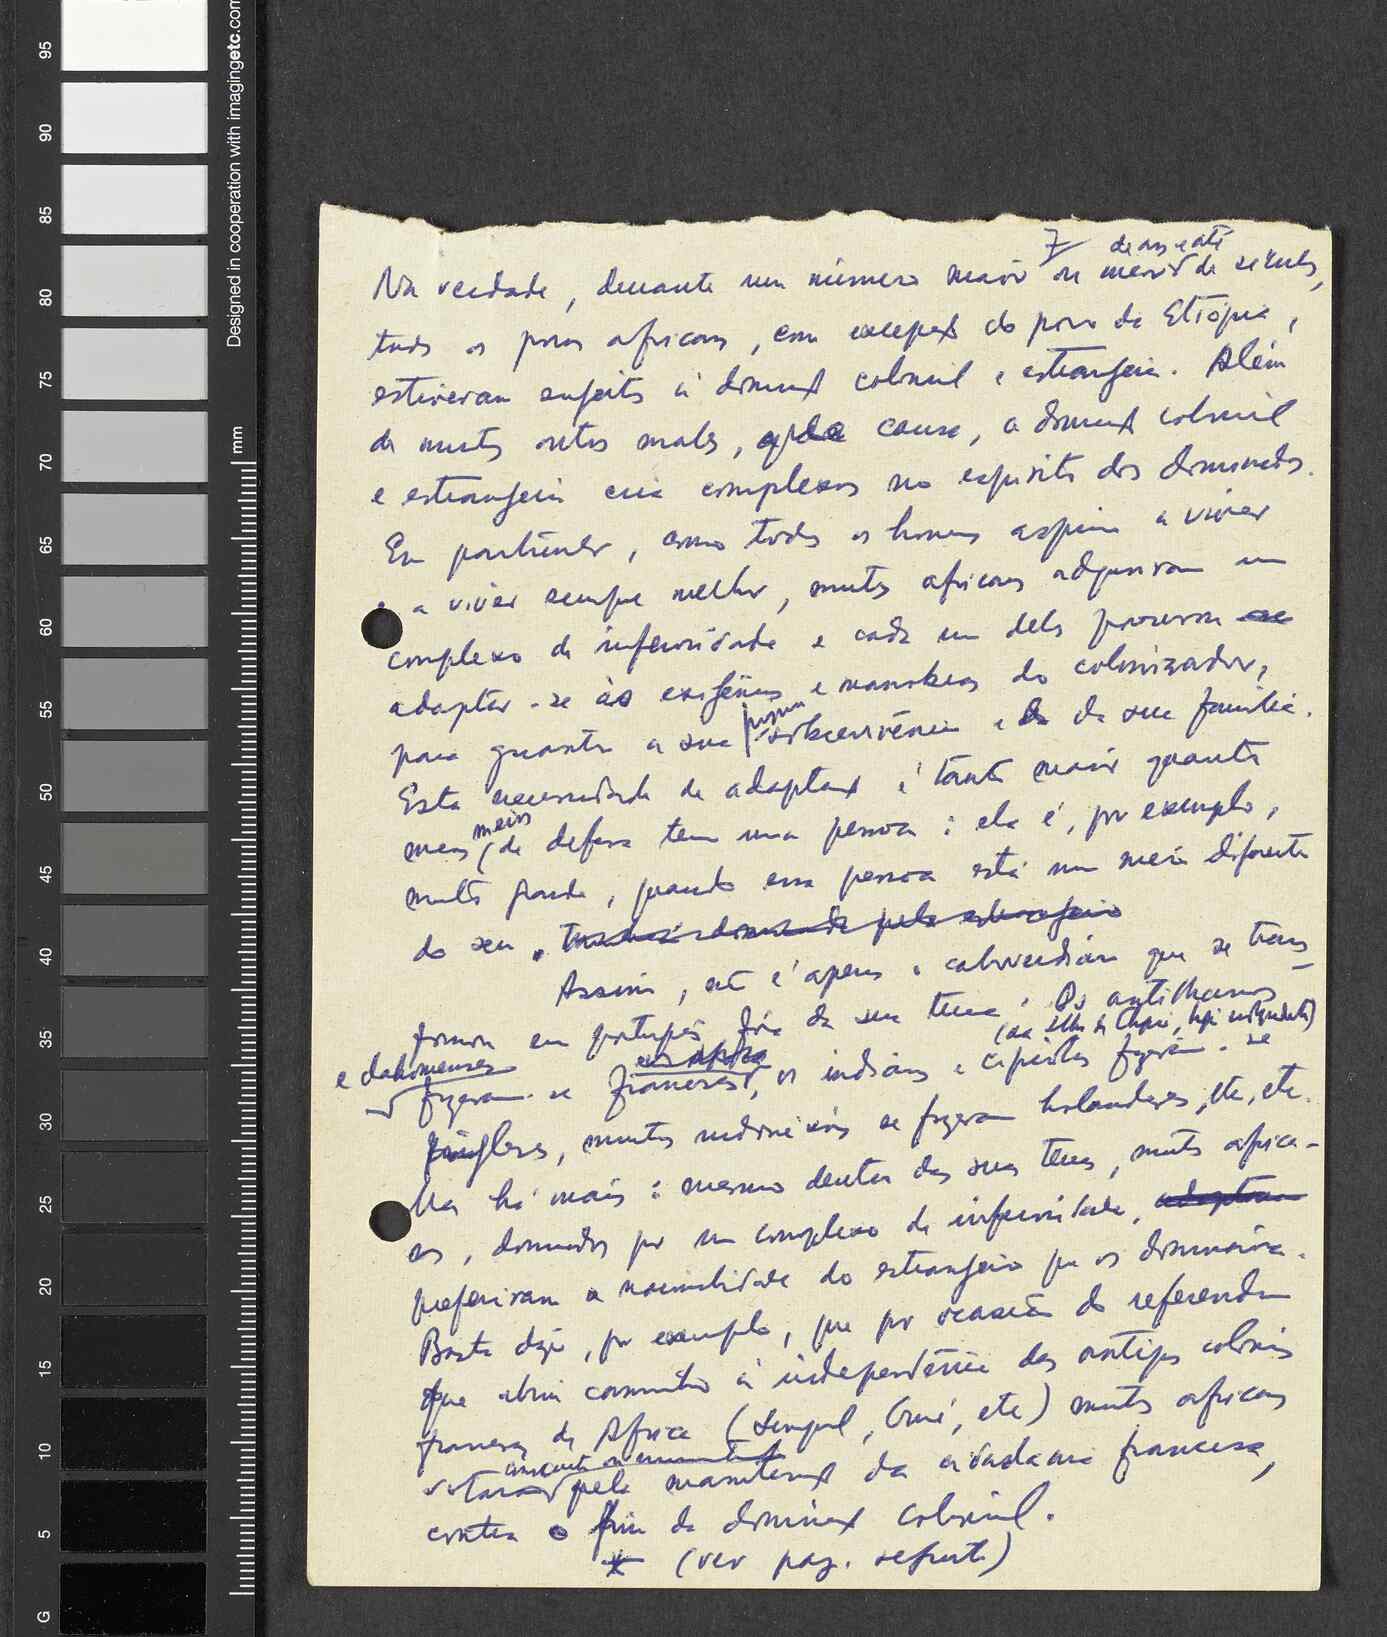 95
90
85
80
75
70
65
60
55
50
45
40
35
30
25
20
15
10
5
G
Designed in cooperation with imagingetc.com
mm
7 de anos até
Na verdade, durante um número maior ou menor de séculos,
todos os povos africanos, com excepção do povo da Etiópia,
estiveram sujeitos à dominação colonial e estrangeira. Além
de muitos outros males, que causa, a dominação colonial
e estrangeira cria complexos no espírito dos dominados.
Em particular, como todos os homens aspiram a viver
e a viver sempre melhor, muitos africanos adquiriram um
complexo de inferioridade e cada um deles procurou
adaptar-se às exigências e manobras do colonizador,
para garantir a sua própria sobrevivência e da sua família.
Esta necessidade de adaptação é tanto maior quanto
menos meios de defesa tem uma pessoa: ela é, por exemplo,
muito grande, quando essa pessoa está num meio diferente
do seu.
Assim, não é apenas o caboverdiano que se trans-
formou em português fora da sua terra. Os antilhanos
(da Ilha de Chipre, hoje independente)
e dahomeanos
fizeram-se franceses, os indianos e cipriotas fizeram-se
ingleses, muitos indonésios se fizeram holandeses, etc, etc.
Mas há mais: mesmo dentro das suas terras, muitos africa-
nos, dominados por um complexo de inferioridade,
preferiram a nacionalidade do estrangeiro que os dominava.
Basta dizer, por exemplo, que por ocasião do referendum
que abriu caminho à independência das antigas colónias
francesas de África (Senegal, Guiné, etc) muitos africanos
votaram pela manutenção da cidadania francesa,
contra o fim da dominação colonial.
* (ver pag. seguinte)